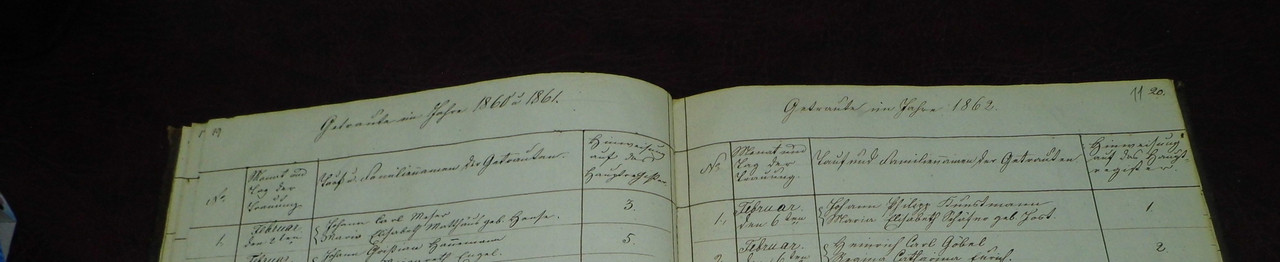 19
Getraute im Jahre 1860 u 1861.
No.
Monat und
Tag der
Trauung.
Tauf u. Familiennamen der Getrauten.
Hinweisung
auf das
Hauptregister
1.
Februar
den 2ten
Johann Carl Moser
Maria Elisabeth Matthäus geb: Hense.
3.
Februar
Johann Christian Hannemann
geb. Engel.
5.
11 20.
Getraute im Jahre 1862.
No.
Monat und
Tag der
Trauung.
Tauf und Familiennamen der Getrauten
Hinweisung
auf das Haupt-
register.
1.
Februar
den 6ten
Johann Philipp Kunstmann
Maria Elisabeth Schäfer geb. Jost.
1
2
Februar.
den 6ten
Heinrich Carl Göbel
Regina Catharina
2.